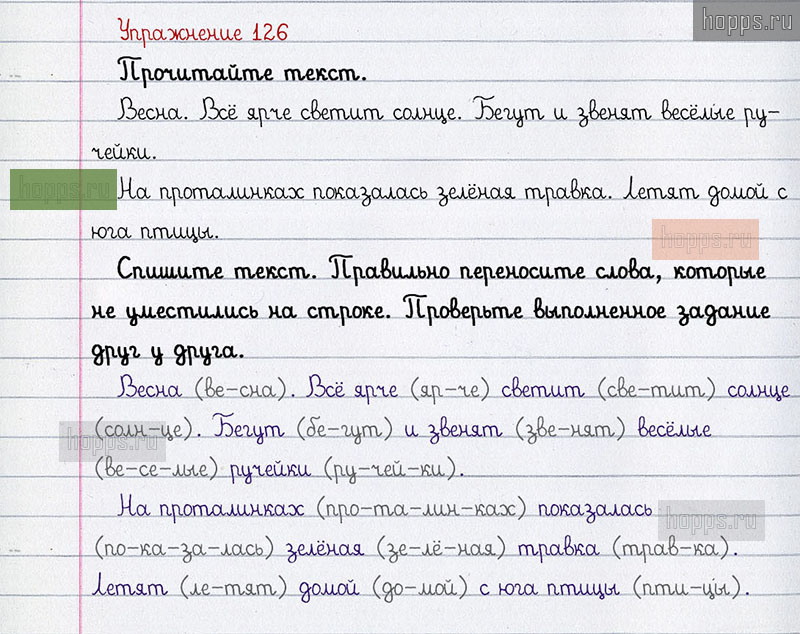 hopps.ru
Упражнение 126
Прочитайте текст.
Весна. Всё ярче светит солнце. Бегут и звенят весёлые ру-
чейки.
hopps.ru
На проталинках показалась зелёная травка. Летят домой с
юга птицы.
hopps.ru
Спишите текст. Правильно переносите слова, которые
не уместились на строке. Проверьте выполненное задание
друг у друга.
Весна (ве-сна). Всё ярче (яр-че) светит (све-тит) солнце
(солн-це). Бегут (бе-гут) и звенят (зве-нят) весёлые
hopps.ru
(ве-се-лые) ручейки (ру-чей-ки).
На проталинках (про-та-лин-ках) показалась
hopps.ru
(по-ка-за-лась) зелёная (зе-лё-ная) травка (трав-ка).
Летят (ле-тят) домой (до-мой) с юга птицы (пти-цы).